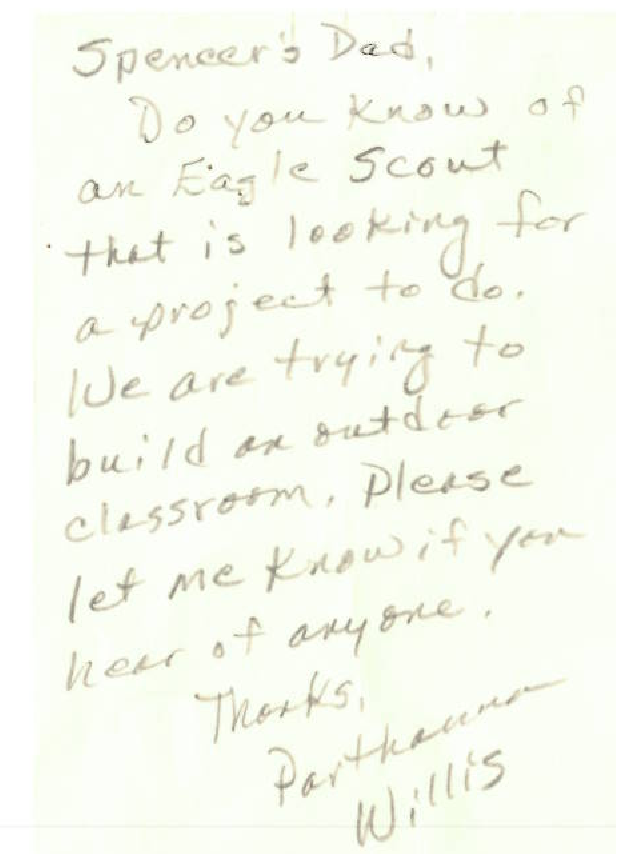 Spencer's Dad,
Do you know of
an Eagle Scout
that is looking for
a project to do.
We are trying to
build an outdoor
classroom. Please
let me know if you
hear of anyone.
Thanks,
Parthanna
Willis